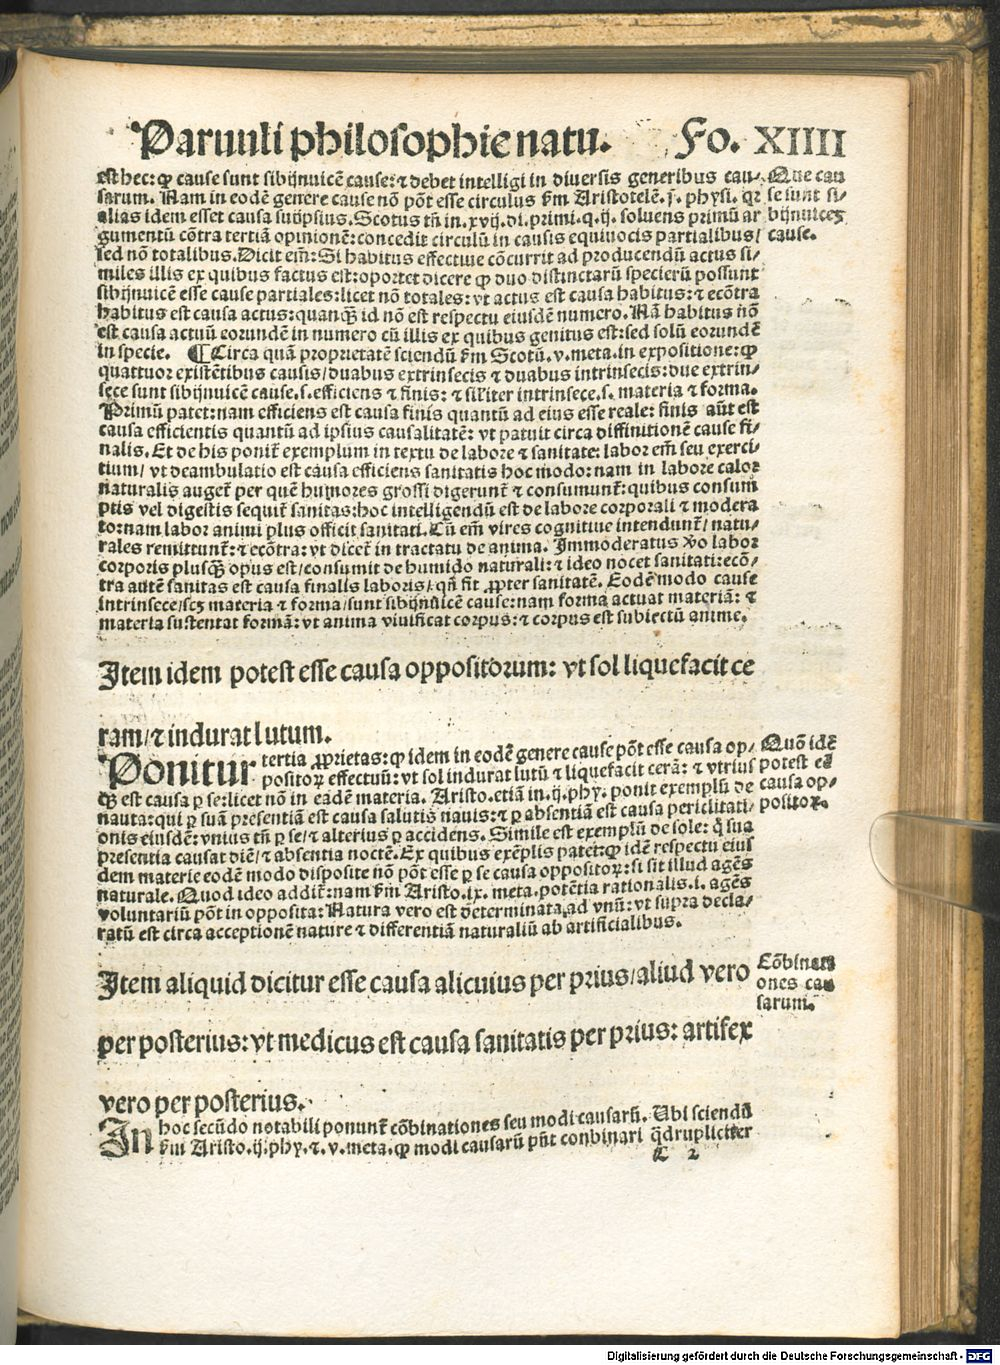 Paruuli philosophie natu. Fo. XIIII
est hec: ꝙ cause sunt sibijnuicẽ cause: ⁊ debet intelligi in diuersis generibus cau⸗
sarum. Nam in eodẽ genere cause nõ põt esse circulus ẜm Aristotelẽ. j. physi. qꝛ
alias idem esset causa suiipsius. Scotus tñ in. xvij. di. primi. q. ij. soluens primũ ar
gumentũ cõtra tertiã opinionẽ: concedit circulũ in causis equiuocis partialibus/
sed nõ totalibus. Dicit em̃: Si habitus effectiue cõcurrit ad producendũ actus si⸗
miles illis ex quibus factus est: oportet dicere ꝙ duo distinctarũ specierũ possunt
sibijnuicẽ esse cause partiales: licet nõ totales: vt actus est causa habitus: ⁊ ecõtra
habitus est causa actus: quanqꝫ id nõ est respectu eiusdẽ numero. Nã habitus nõ
est causa actuũ eorundẽ in numero cũ illis ex quibus genitus est: sed solũ eorundẽ
in specie. ¶ Circa quã proprietatẽ sciendũ ẜm Scotũ. v. meta. in expositione: ꝙ
quattuor existẽtibus causis/ duabus extrinsecis ⁊ duabus intrinsecis: due extrin⸗
sece sunt sibijnuicẽ cause. s. efficiens ⁊ finis: ⁊ sil̃iter intrinsece. s. materia ⁊ forma.
Primũ patet: nam efficiens est causa finis quantũ ad eius esse reale: finis aũt est
causa efficientis quantũ ad ipsius causalitatẽ: vt patuit circa diffinitionẽ cause fi⸗
nalis. Et de his ponit᷑ exemplum in textu de labore ⁊ sanitate: labor em̃ seu exerci⸗
tium/ vt deambulatio est causa efficiens sanitatis hoc modo: nam in labore calor
naturalis auget᷑ per quẽ humores grossi digerunt᷑ ⁊ consumunt᷑: quibus consum
ptis vel digestis sequit᷑ sanitas: hoc intelligendũ est de labore corporali ⁊ modera
to: nam labor animi plus officit sanitati. Cũ em̃ vires cognitiue intendunt᷑/ natu⸗
rales remittunt᷑: ⁊ ecõtra: vt dicet᷑ in tractatu de anima. Immoderatus v̾o labor
corporis plusqꝫ opus est/ consumit de humido naturali: ⁊ ideo nocet sanitati: ecõ⸗
tra autẽ sanitas est causa finalis laboris/ qñ fit ꝓpter sanitatẽ. Eodẽ modo cause
intrinsece/ scꝫ materia ⁊ forma/ sunt sibijnuicẽ cause: nam forma actuat materiã: ⁊
materia sustentat formã: vt anima viuificat corpus: ⁊ corpus est subiectũ anime.
Que cau
se sunt si⸗
bijnuicẽ
cause.
Item idem potest esse causa oppositorum: vt sol liquefacit ce
ram/ ⁊ indurat lutum.
Ponitur tertia ꝓprietas: ꝙ idem in eodẽ genere cause põt esse causa op⸗
positoꝝ effectuũ: vt sol indurat lutũ ⁊ liquefacit cerã: ⁊ vtrius
qꝫ est causa ꝑ se: licet nõ in eadẽ materia. Aristo. etiã in. ij. phy. ponit exemplũ de
nauta: qui ꝑ suã presentiã est causa salutis nauis: ⁊ ꝑ absentiã est causa periclitati⸗
onis eiusdẽ: vnius tñ ꝑ se/ ⁊ alterius ꝑ accidens. Simile est exemplũ de sole: q̃ sua
presentia causat diẽ/ ⁊ absentia noctẽ. Ex quibus exẽplis patet: ꝙ idẽ respectu eius
dem materie eodẽ modo disposite nõ põt esse ꝑ se causa oppositoꝝ: si sit illud agẽs
naturale. Quod ideo addit᷑: nam ẜm Aristo. ix. meta. potẽtia rationalis. i. agẽs
voluntariũ põt in opposita: Natura vero est determinata ad vnũ: vt supra decla⸗
ratũ est circa acceptionẽ nature ⁊ differentiã naturaliũ ab artificialibus.
Quõ idẽ
potest eẽ
causa op⸗
positoꝝ.
Item aliquid dicitur esse causa alicuius per prius/ aliud vero
per posterius: vt medicus est causa sanitatis per prius: artifex
vero per posterius.
Cõbinati
ones cau
sarum.
In hoc secũdo notabili ponunt᷑ cõbinationes seu modi causarũ. Ubi sciendũ
ẜm Aristo. ij. phy. ⁊. v. meta. ꝙ modi causarũ pñt conbinari q̃drupliciter
C 2
Digitalisierung gefördert durch die Deutsche Forschungsgemeinschaft - DFG